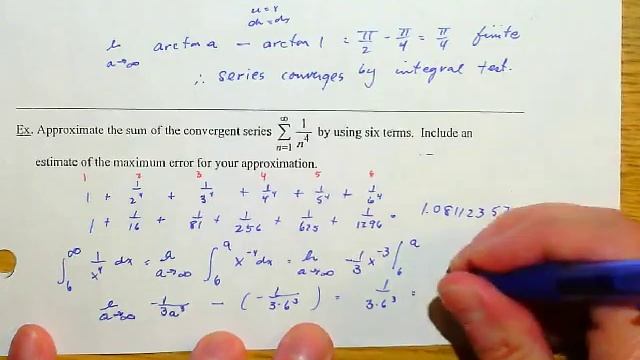 u = x
du = dx
lim a→∞ arctan a − arctan 1 = π/2 − π/4 = π/4 finite
∴ series converges by integral test.
Ex. Approximate the sum of the convergent series ∑ n=1 ∞ 1/n⁴ by using six terms. Include an
estimate of the maximum error for your approximation.
1 2 3 4 5 6
1 + 1/2⁴ + 1/3⁴ + 1/4⁴ + 1/5⁴ + 1/6⁴
1 + 1/16 + 1/81 + 1/256 + 1/625 + 1/1296 = 1.0811235
∫₆^∞ 1/x⁴ dx = lim a→∞ ∫₆^a x⁻⁴ dx = lim a→∞ −1/3 x⁻³ |₆^a
lim a→∞ −1/3a³ − (−1/3·6³) = 1/3·6³ =